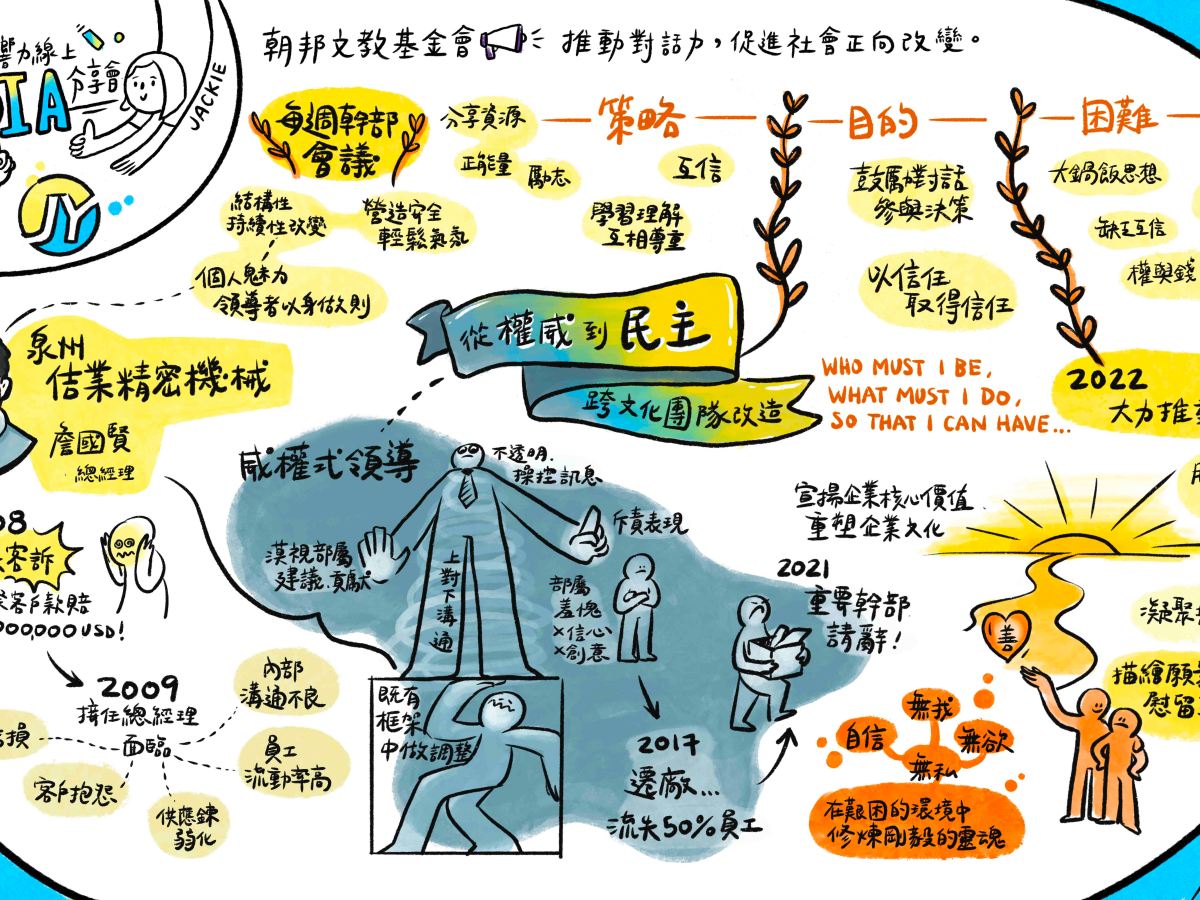 朝邦文教基金會 推動對話力,促進社會正向改變。
響力線上
分享會
IA
JACKIE
JY
每週幹部
會議
分享資源
正能量
勵志
策略
互信
學習理解
互相尊重
目的
鼓勵對話
參與決策
以信任
取得信任
困難
大鍋飯思想
缺乏互信
權與錢
結構性
持續性改變
營造安全
輕鬆氣氛
個人魅力
領導者以身做則
泉州
佶業精密機械
詹國賢
總經理
從權威到民主
跨文化團隊改造
WHO MUST I BE,
WHAT MUST I DO,
SO THAT I CAN HAVE...
2022
大力推
威權式領導
不透明.
操控訊息
斥責表現
漠視部屬
建議.貢獻
上對下溝通
部屬
羞愧
×信心
×創意
既有
框架
中做調整
08
客訴
客戶款賠
000,000 USD!
2009
接任總經理
面臨
內部
溝通不良
員工
流動率高
供應鍊
弱化
客戶抱怨
損
2017
遷廠...
流失50%員工
2021
重要幹部
請辭!
宣揚企業核心價值.
重塑企業文化
善
凝聚
描繪願
慰留
無我
自信
無欲
無私
在艱困的環境中
修煉剛毅的靈魂